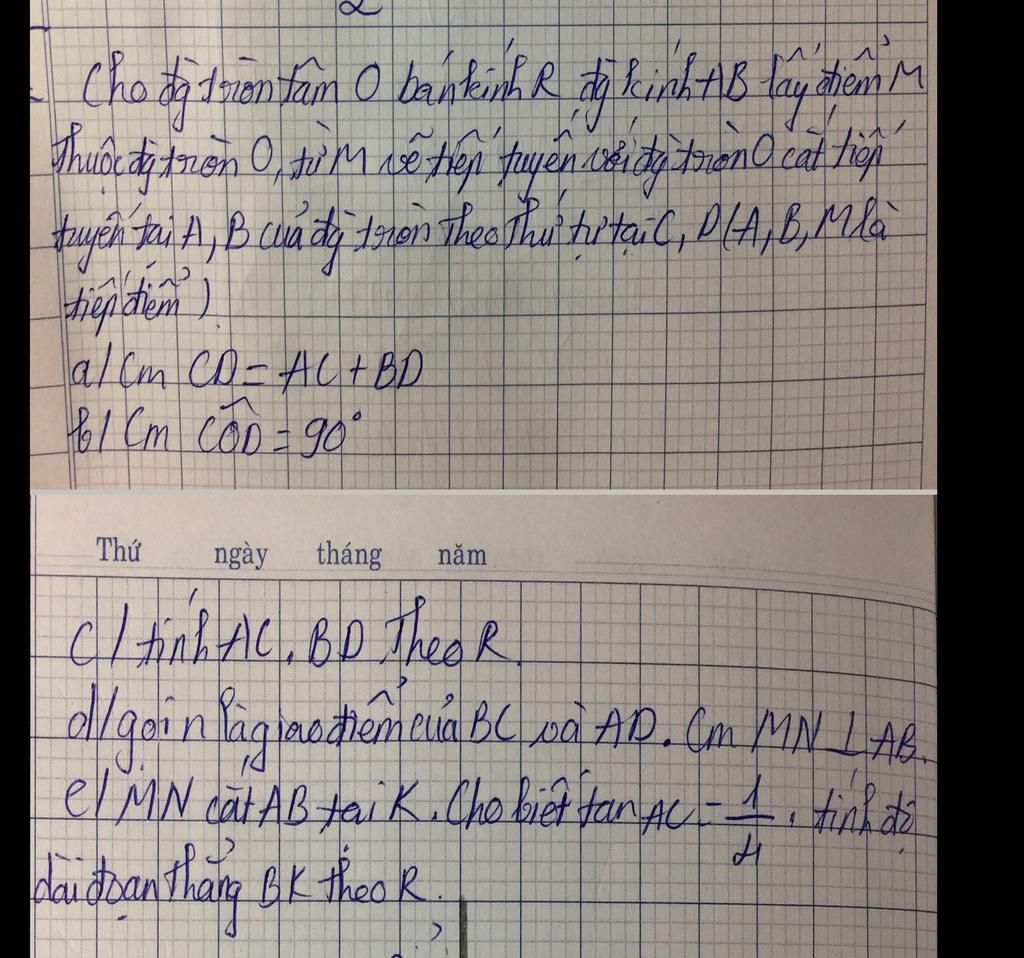 2
Cho đg tròn tâm O bán kính R đg kính AB lấy điểm M
thuộc đg tròn O, từ M vẽ tiếp tuyến với đg tròn O cắt tiếp
tuyến tại A, B của đg tròn theo thứ tự tại C, D (A, B, M là
tiếp điểm)
a/ Cm CD = AC + BD
b/ Cm CÔD = 90°
Thứ ngày tháng năm
c/ tính AC . BD theo R.
d/ gọi n là giao điểm của BC và AD. Cm MN ⊥ AB.
e/ MN cắt AB tại K. Cho biết tan AC = 1/4, tính độ
dài đoạn thẳng BK theo R.